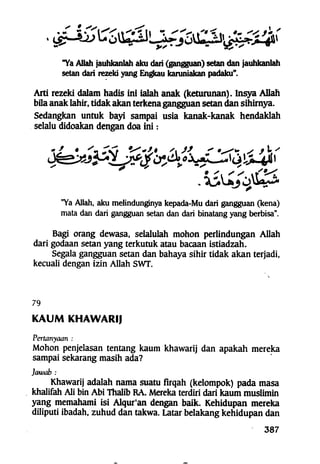 اَللّٰهُمَّ جَنِّبْنِي الشَّيْطَانَ وَجَنِّبِ الشَّيْطَانَ مَا رَزَقْتَنِي .
"Ya Allah jauhkanlah aku dari (gangguan) setan dan jauhkanlah
setan dari rezeki yang Engkau karuniakan padaku".
Arti rezeki dalam hadis ini ialah anak (keturunan). Insya Allah
bila anak lahir, tidak akan terkena gangguan setan dan sihirnya.
Sedangkan untuk bayi sampai usia kanak-kanak hendaklah
selalu didoakan dengan doa ini :
"Ya Allah, aku melindunginya kepada-Mu dari gangguan (kena)
mata dan dari gangguan setan dan dari binatang yang berbisa".
Bagi orang dewasa, selalulah mohon perlindungan Allah
dari godaan setan yang terkutuk atau bacaan istiadzah.
Segala gangguan setan dan bahaya sihir tidak akan terjadi,
kecuali dengan izin Allah SWT.
79
KAUM KHAWARIJ
Pertanyaan :
Mohon penjelasan tentang kaum khawarij dan apakah mereka
sampai sekarang masih ada?
Jawab :
Khawarij adalah nama suatu firqah (kelompok) pada masa
khalifah Ali bin Abi Thalib RA. Mereka terdiri dari kaum muslimin
yang memahami isi Alqur'an dengan baik. Kehidupan mereka
diliputi ibadah, zuhud dan takwa. Latar belakang kehidupan dan
387